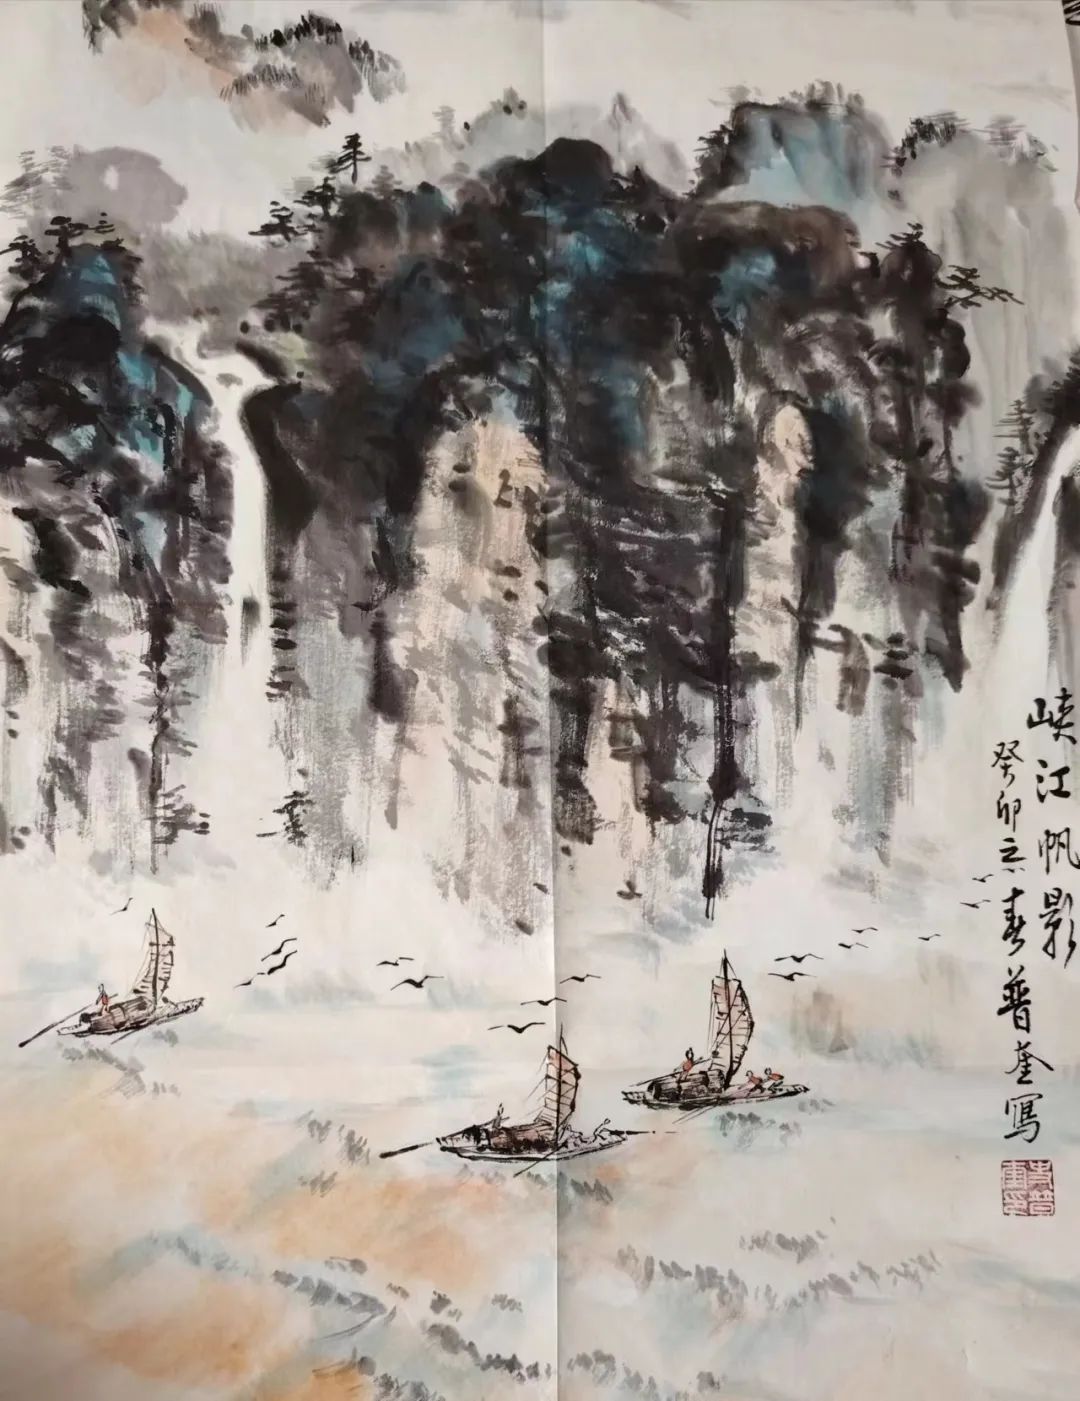 峡江帆影
癸卯立春普奎寫